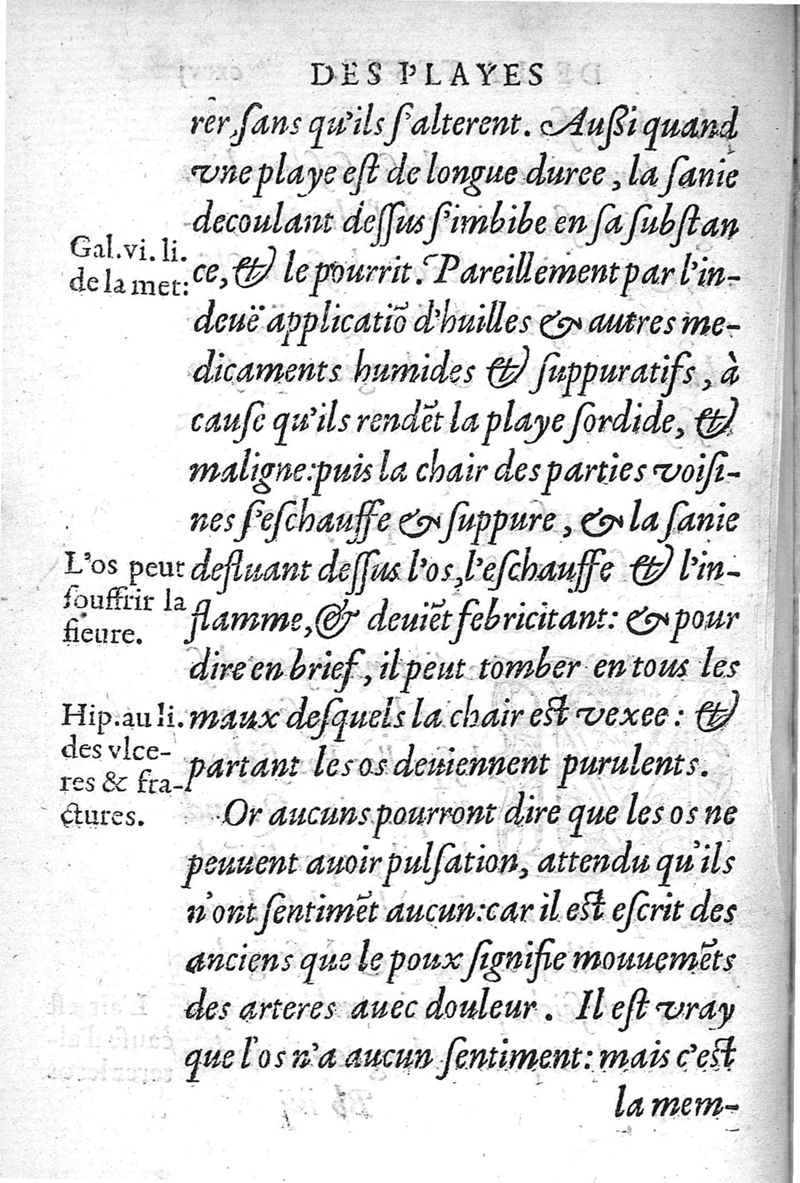 DES PLAYES
rer, sans qu'ils s'alterent. Außi quand
vne playe est de longue duree, la sanie
decoulant dessus s'imbibe en sa substan
Gal. vi. li.
de la met:
ce, & le pourrit. Pareillement par l'in-
deuë applicatiõ d'huilles & autres me-
dicaments humides & suppuratifs, à
cause qu'ils rendẽt la playe sordide, &
maligne: puis la chair des parties voisi-
nes s'eschauffe & suppure, & la sanie
L'os peut
souffrir la
fieure.
defluant dessus l'os, l'eschauffe & l'in-
flamme, & deuiẽt febricitant: & pour
dire en brief, il peut tomber en tous les
Hip. au li.
des vlce-
res & fra-
ctures.
maux desquels la chair est vexee: &
partant les os deuiennent purulents.
Or aucuns pourront dire que les os ne
peuuent auoir pulsation, attendu qu'ils
n'ont sentimẽt aucun: car il est escrit des
anciens que le poux signifie mouuemẽts
des arteres auec douleur. Il est vray
que l'os n'a aucun sentiment: mais c'est
la mem-